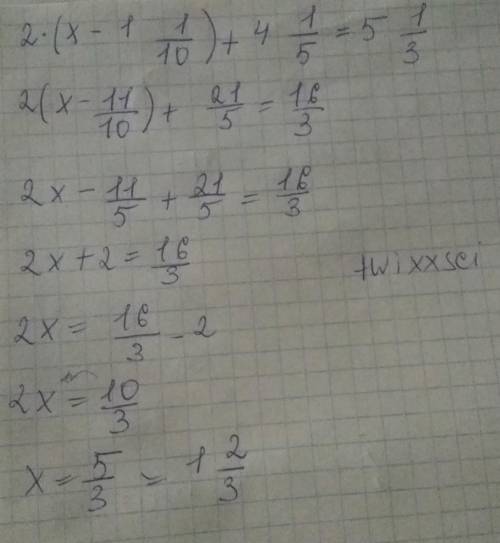 2·(x - 1 1/10) + 4 1/5 = 5 1/3
2(x - 11/10) + 21/5 = 16/3
2x - 11/5 + 21/5 = 16/3
2x + 2 = 16/3
twixxsci
2x = 16/3 - 2
2x = 10/3
x = 5/3 = 1 2/3